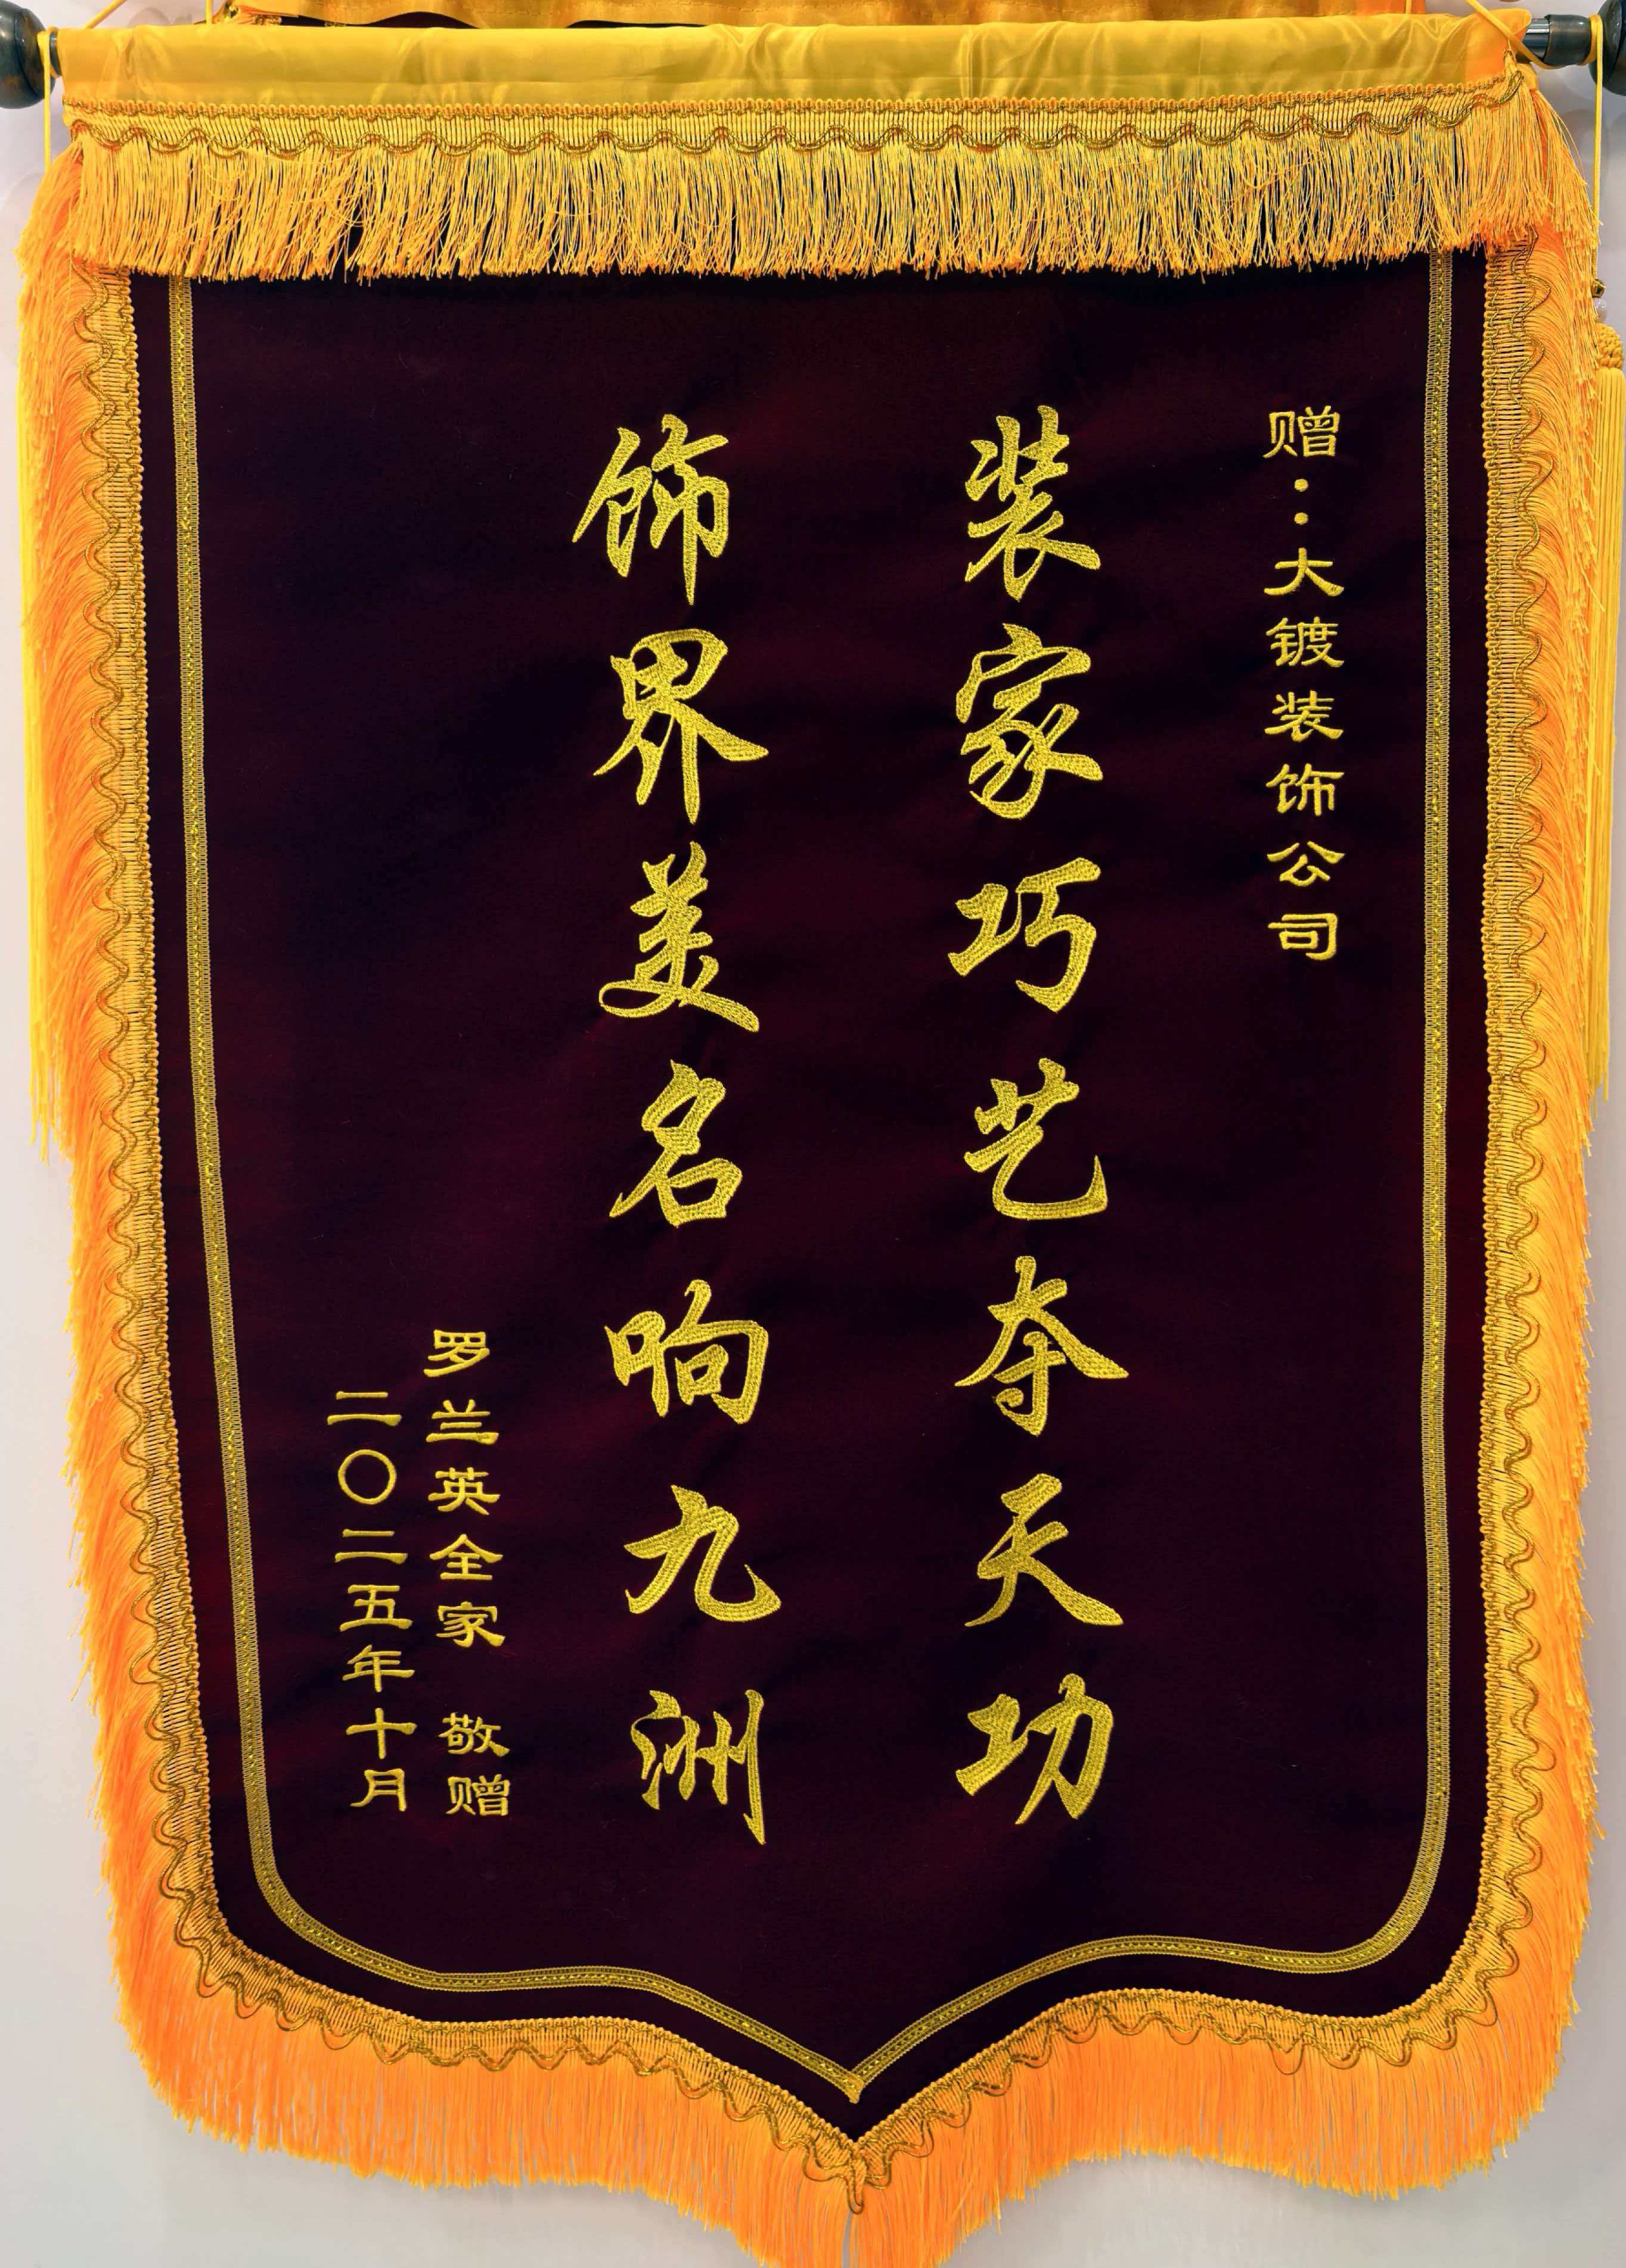 赠：大镀装饰公司
装家巧艺夺天功
饰界美名响九洲
罗兰英全家 敬赠
二〇二五年十月